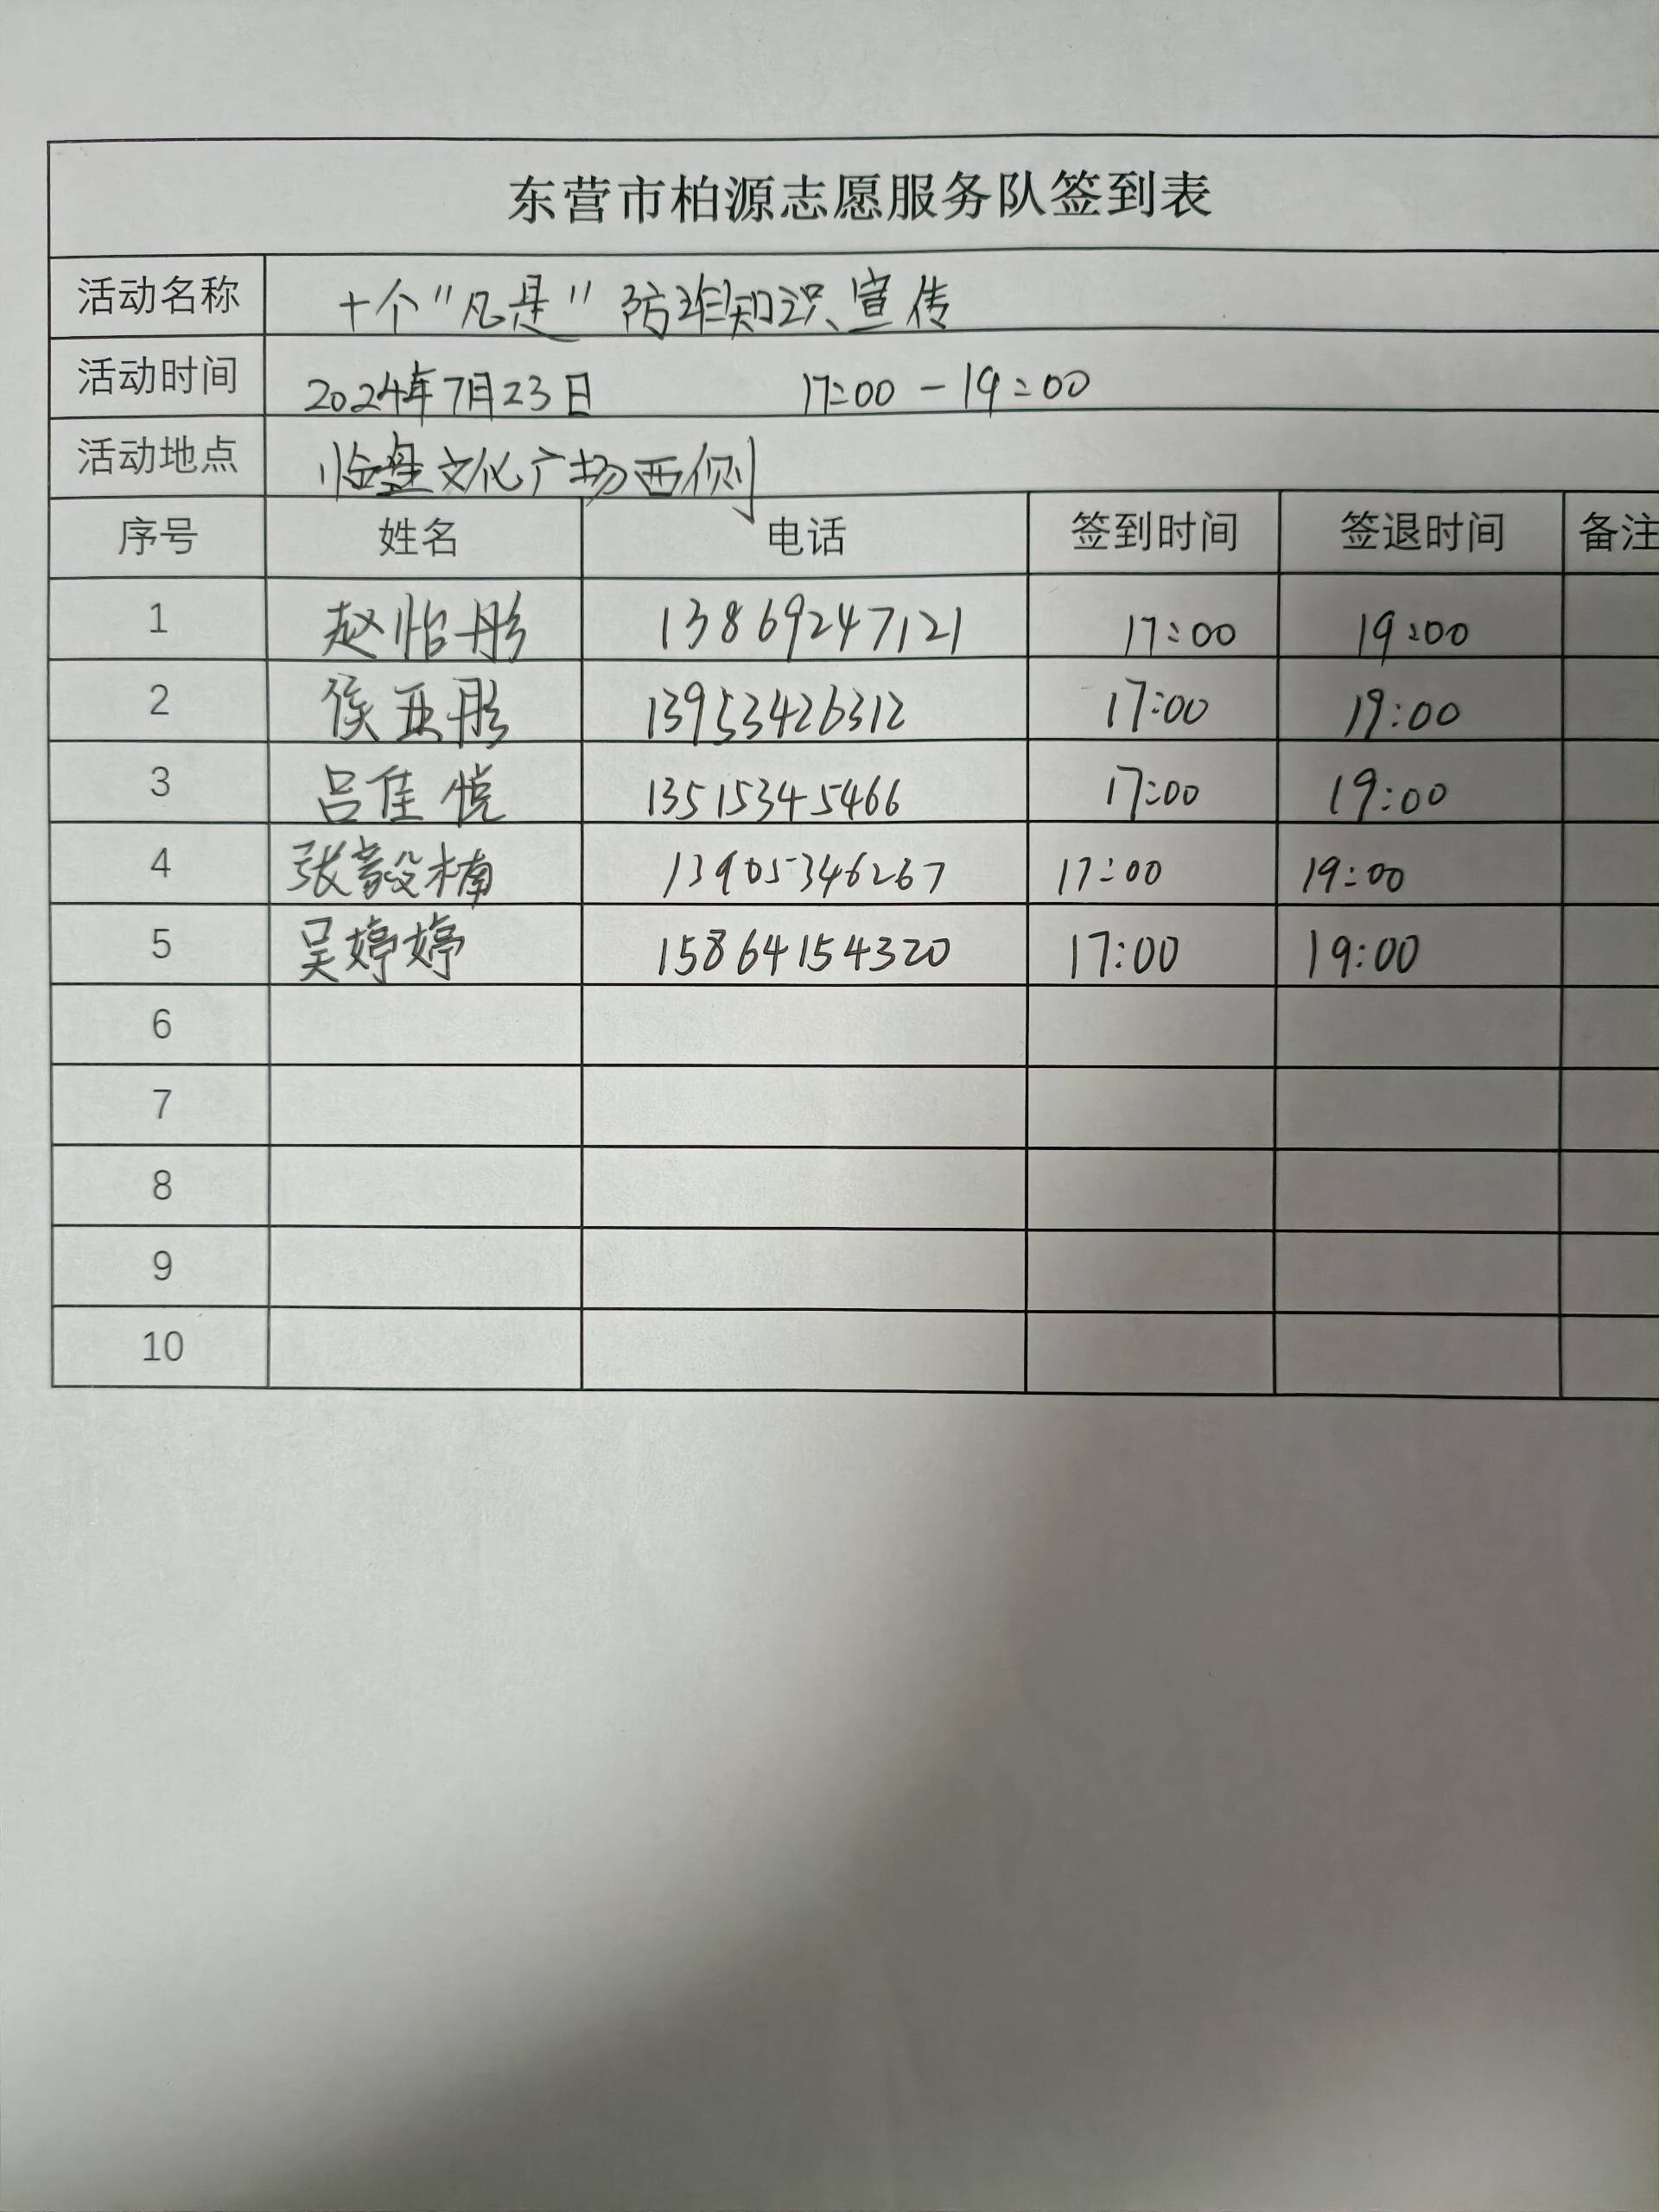 东营市柏源志愿服务队签到表
活动名称 十个"凡是"防诈知识宣传
活动时间 2024年7月23日 17:00-19:00
活动地点 临盘文化广场西侧
序号 姓名 电话 签到时间 签退时间 备注
1 赵怡彤 13869247121 17:00 19:00
2 侯亚彤 13953426312 17:00 19:00
3 吕佳悦 13515345466 17:00 19:00
4 张毅楠 13905346267 17:00 19:00
5 吴婷婷 15864154320 17:00 19:00
6
7
8
9
10